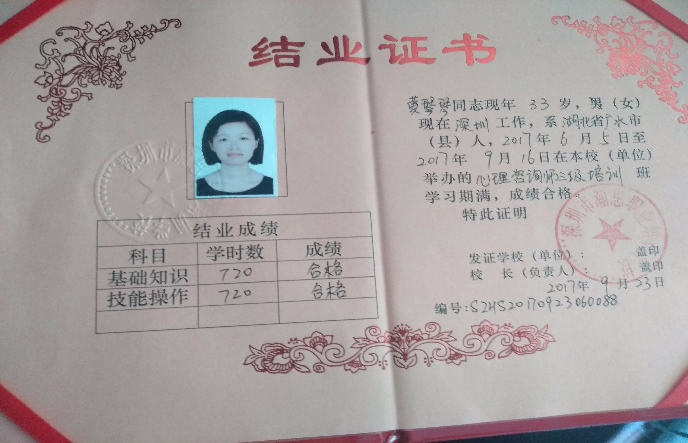 结业证书
琴琴同志现年 33 岁，男（女）
现在 深圳 工作，系 湖北省广水市
（县）人，2017年 6 月 5 日至
2017年 9 月 16 日在本校（单位）
举办的 心理咨询师三级培训 班
学习期满，成绩合格。
特此证明
发证学校（单位）： 盖印
校 长（负责人） 盖印
2017年 9 月 23 日
编号：SZHS20170923060088
结业成绩
科目 学时数 成绩
基础知识 720 合格
技能操作 720 合格
深圳市
深圳市